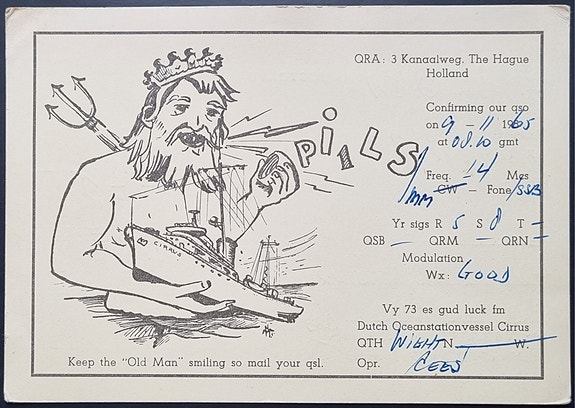 QRA: 3 Kanaalweg. The Hague
Holland
Confirming our qso
on 9 - 11 1965
at 08.10 gmt
PI1LS/MM
Freq. 14 Mcs
CW - Fone/SSB
Yr sigs R 5 S 8 T -
QSB - QRM - QRN -
Modulation
Wx: GOOD
CIRRUS
Vy 73 es gud luck fm
Dutch Oceanstationvessel Cirrus
QTH WIGHT N W.
Opr. CEES
Keep the "Old Man" smiling so mail your qsl.